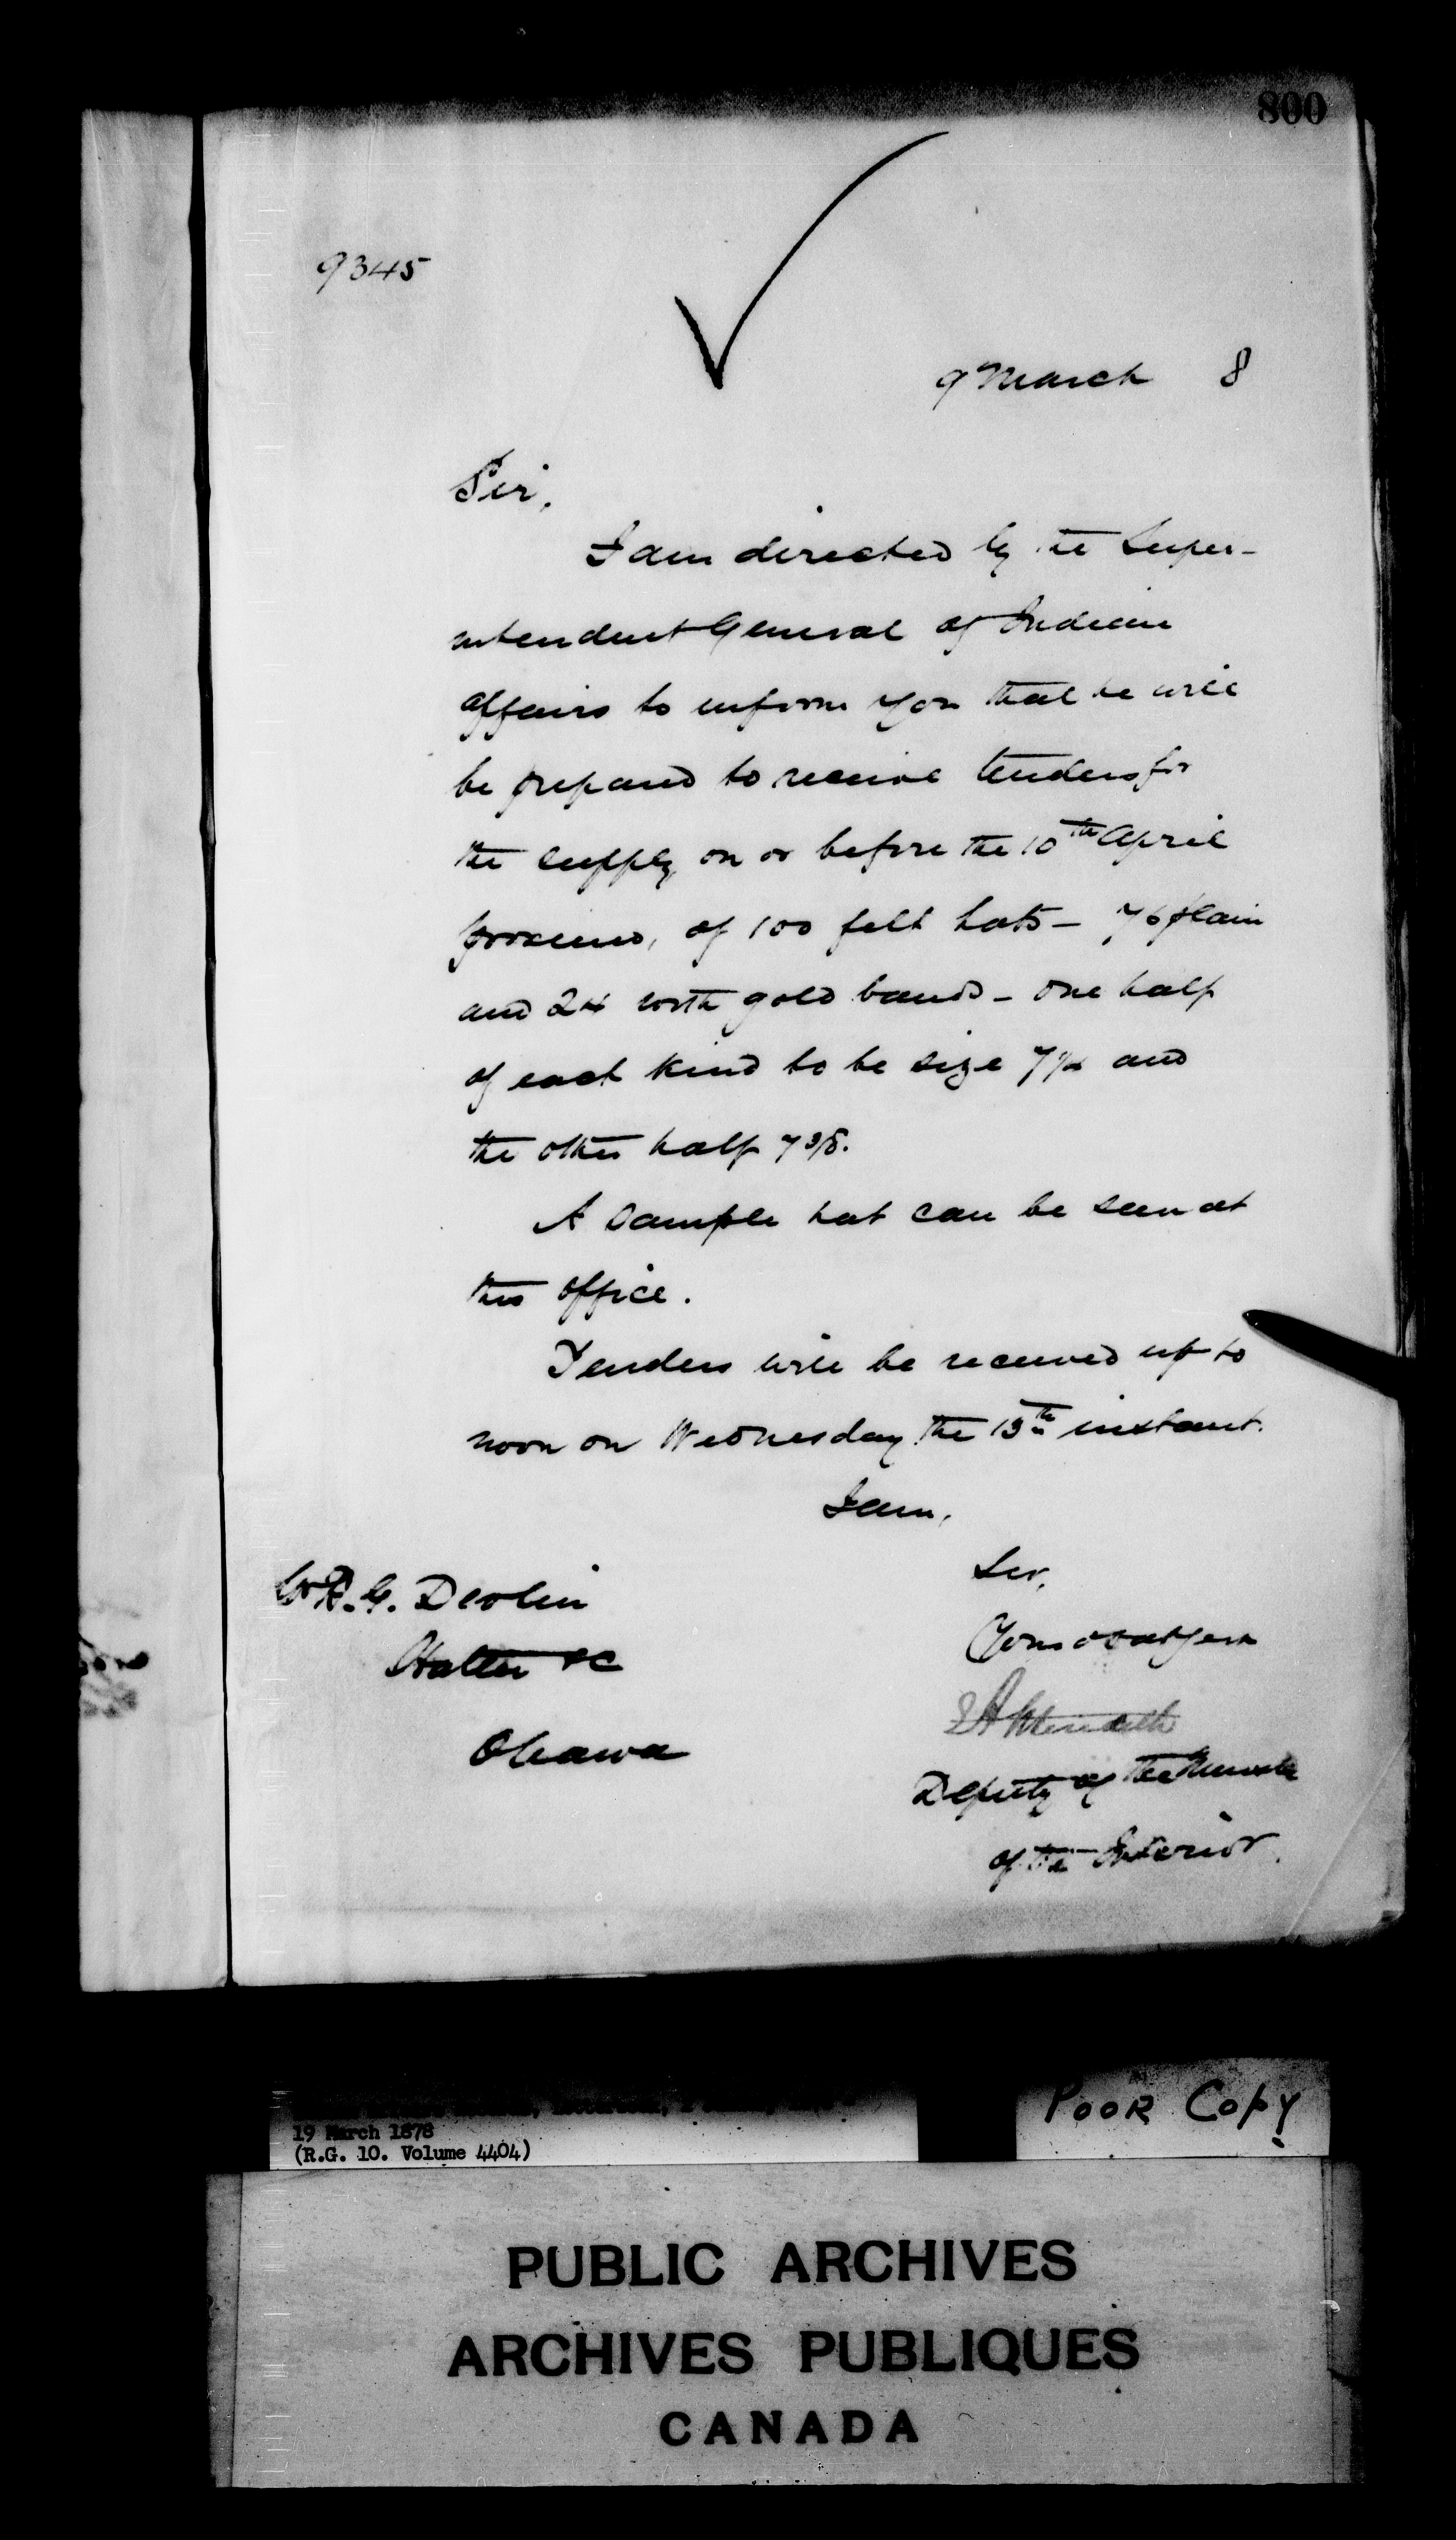 800
9345
9 March 8
Sir,
I am directed by the Super-
intendent General of Indian
affairs to inform you that he will
be prepared to receive tenders for
the supply, on or before the 10th April
proximo, of 100 felt hats - 76 plain
and 24 with gold bands - one half
of each kind to be size 7 1/4 and
the other half 7 3/8.
A sample hat can be seen at
this office.
Tenders will be received up to
noon on Wednesday the 13th instant.
I am,
Sir,
R. G. Devlin
Your obedt Sert
Hatter &c
E A Meredith
Ottawa
Deputy of the Minister
of the Interior.
19 March 1878
(R.G. 10. Volume 4404)
POOR COPY
PUBLIC ARCHIVES
ARCHIVES PUBLIQUES
CANADA